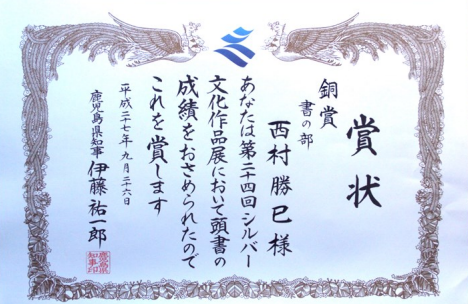 賞状
銅賞
書の部
西村勝巳様
あなたは第二十四回シルバー
文化作品展において頭書の
成績をおさめられたので
これを賞します
平成二十七年九月二十六日
鹿児島県知事 伊藤祐一郎
鹿児島県
知事印